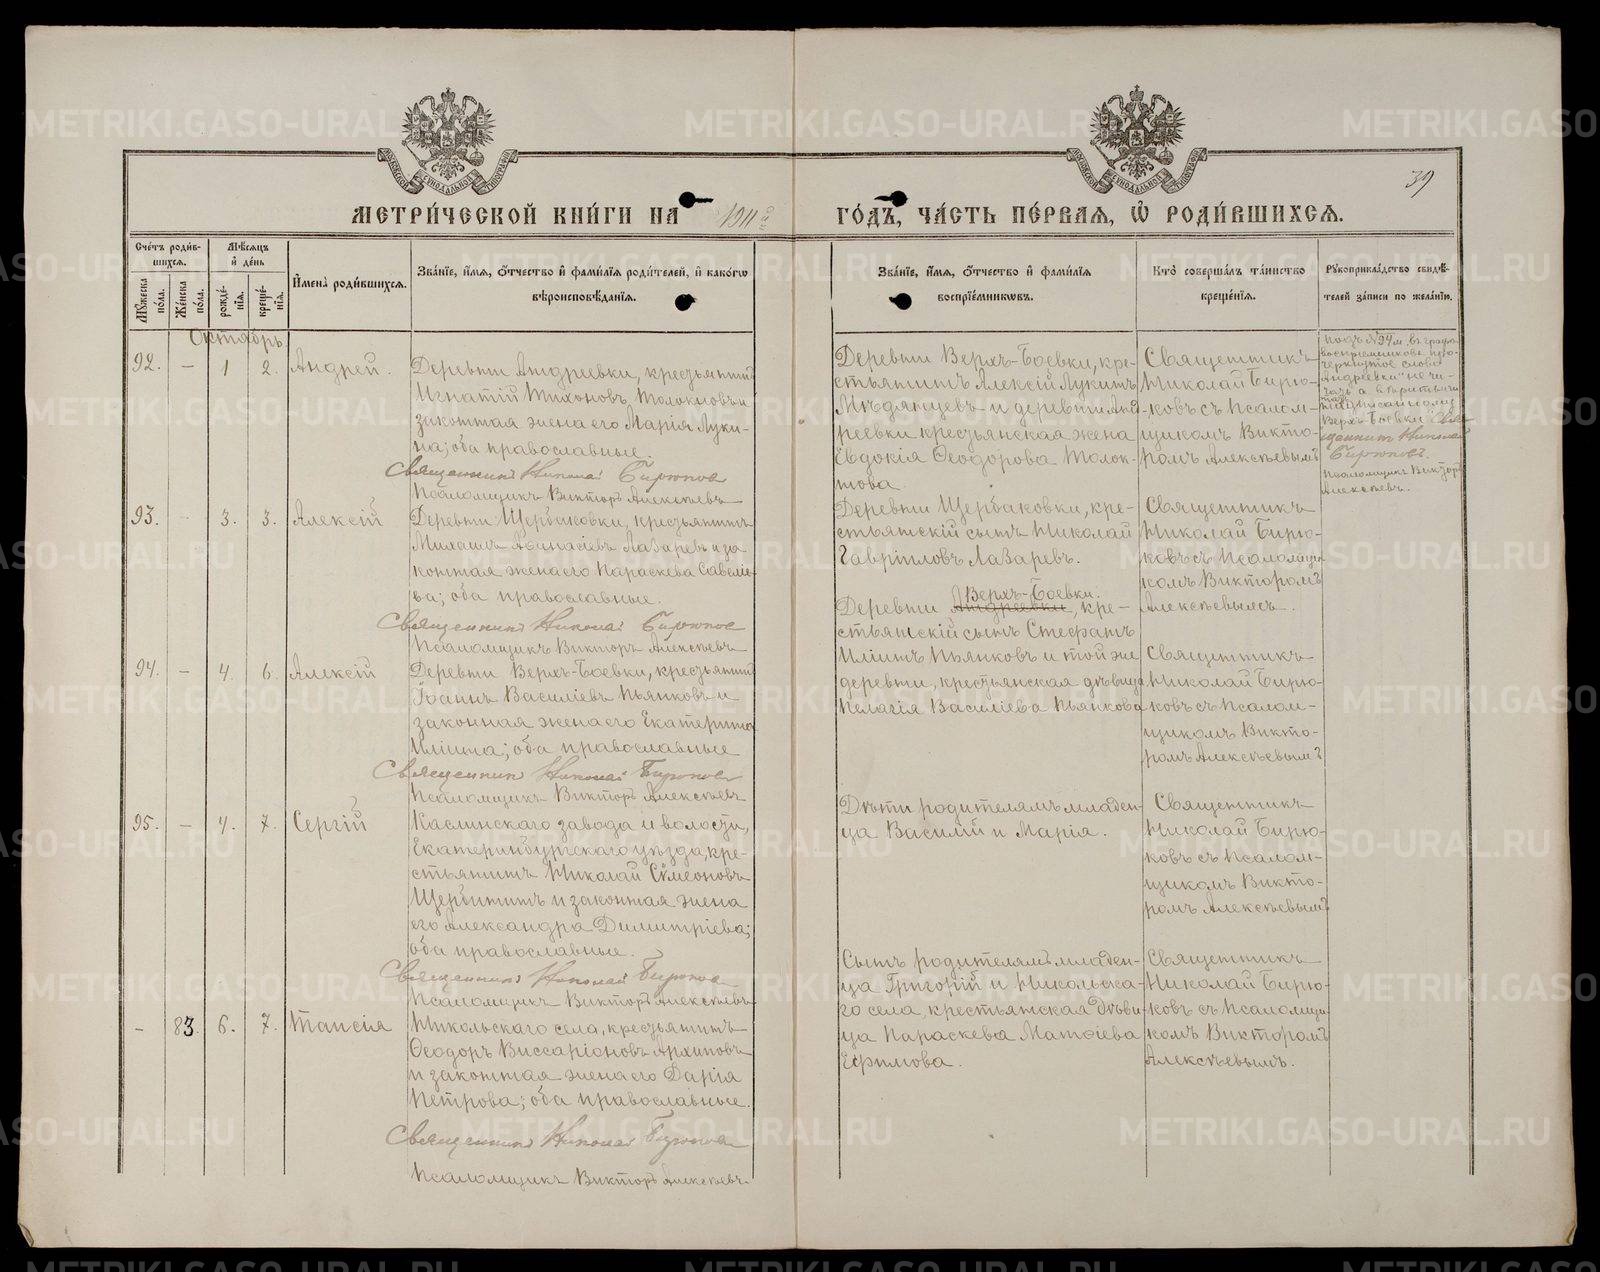 МОСКОВСКОЙ СѴНОДАЛЬНОЙ ТИПОГРАФІИ
МОСКОВСКОЙ СѴНОДАЛЬНОЙ ТИПОГРАФІИ
39
МЕТРИ́ЧЕСКОЙ КНИ́ГИ НА 1911й ГО́ДЪ, ЧА́СТЬ ПЕ́РВАЯ, Ѽ РОДИ́ВШИХСЯ.
Сче́тъ роди́в-
шихся.
Мѣ́сяцъ
и҆ де́нь
Мꙋ́жеска по́ла.
Же́нска по́ла.
рожде́-
нїѧ.
креще́-
нїѧ.
И҆мена̀ роди́вшихсѧ.
Зва́нїе, и҆́мѧ, ѻ҆́тчество и҆ фами́лїѧ роди́телей, и҆ како́гѡ
вѣроисповѣ́данїѧ.
Зва́нїе, и҆́мѧ, ѻ҆́тчество и҆ фами́лїѧ
воспрїе́мникѡвъ.
Кто̀ соверша́лъ та́инство
креще́нїѧ.
Рꙋкоприкла́дство свидѣ́-
телей за́писи по жела́нїю.
Октябрь.
92. — 1 2. Андрей.
Деревни Андреевки, крестьянинъ
Игнатій Тихоновъ Толокновъ и
законная жена его Марія Луки-
на; оба православные.
Священникъ Николай Бирюков
Псаломщикъ Викторъ Алексѣевъ
Деревни Верхъ-Боевки, кре-
стьянинъ Алексій Лукинъ
Мѣдянцевъ и деревни Анд
реевки крестьянская жена
Евдокія Ѳеодорова Толок-
нова.
Священникъ
Николай Бирю-
ковъ съ Псалом-
щикомъ Викто-
ромъ Алексѣевымъ
Подъ №94м. въ графѣ
воспріемниковъ
черкнутое слово
"Андреевки" не чи-
тать а
написанному
Верхъ-Боевки Свя-
щенникъ Николай
Бирюковъ.
Псаломщикъ Викторъ
Алексѣевъ.
93. - 3. 3. Алексій
Деревни Щербаковки, крестьянинъ
Михаилъ Аѳанасіевъ Лазаревъ и за
конная жена его Параскева Савеліе-
ва; оба православные.
Священникъ Николай Бирюков
Псаломщикъ Викторъ Алексѣевъ
Деревни Щербаковки, кре-
стьянскій сынъ Николай
Гавріиловъ Лазаревъ.
Священникъ
Николай Бирю-
ковъ съ Псаломщи
комъ Викторомъ
Алексѣевымъ.
94. — 4. 6. Алексій
Деревни Верхъ-Боевки, крестьянинъ
Іоаннъ Василіевъ Пьянковъ и
законная жена его Екатерина
Иліина; оба православные
Священникъ Николай Бирюков
Псаломщикъ Викторъ Алексѣевъ
Верхъ-Боевки.
Деревни Андреевки, кре-
стьянскій сынъ Стефанъ
Иліинъ Пьянковъ и той же
деревни, крестьянская дѣвица
Пелагія Василіева Пьянкова
Священникъ
Николай Бирю-
ковъ съ Псалом-
щикомъ Викто-
ромъ Алексѣевымъ
95. — 4. 7. Сергій
Каслинскаго завода и волости,
Екатеринбургскаго уѣзда, кре-
стьянинъ Николай Сѵмеоновъ
Щербининъ и законная жена
его Александра Димитріева;
оба православные.
Священникъ Николай Бирюков
Псаломщикъ Викторъ Алексѣевъ
Дѣти родителямъ младен-
ца Василій и Марія.
Священникъ
Николай Бирю-
ковъ съ Псалом-
щикомъ Викто-
ромъ Алексѣевымъ
- 83. 6. 7. Таисія
Никольскаго села, крестьянинъ
Ѳеодоръ Виссаріоновъ Архиповъ
и законная жена его Дарія
Петрова; оба православные.
Священникъ Николай Бирюков
Псаломщикъ Викторъ Алексѣевъ
Сынъ родителямъ младен-
ца Григорій и Никольска-
го села, крестьянская дѣви
ца Параскева Матѳіева
Ефимова.
Священникъ
Николай Бирю-
ковъ съ Псаломщи
комъ Викторомъ
Алексѣевымъ.
METRIKI.GASO-URAL.RU